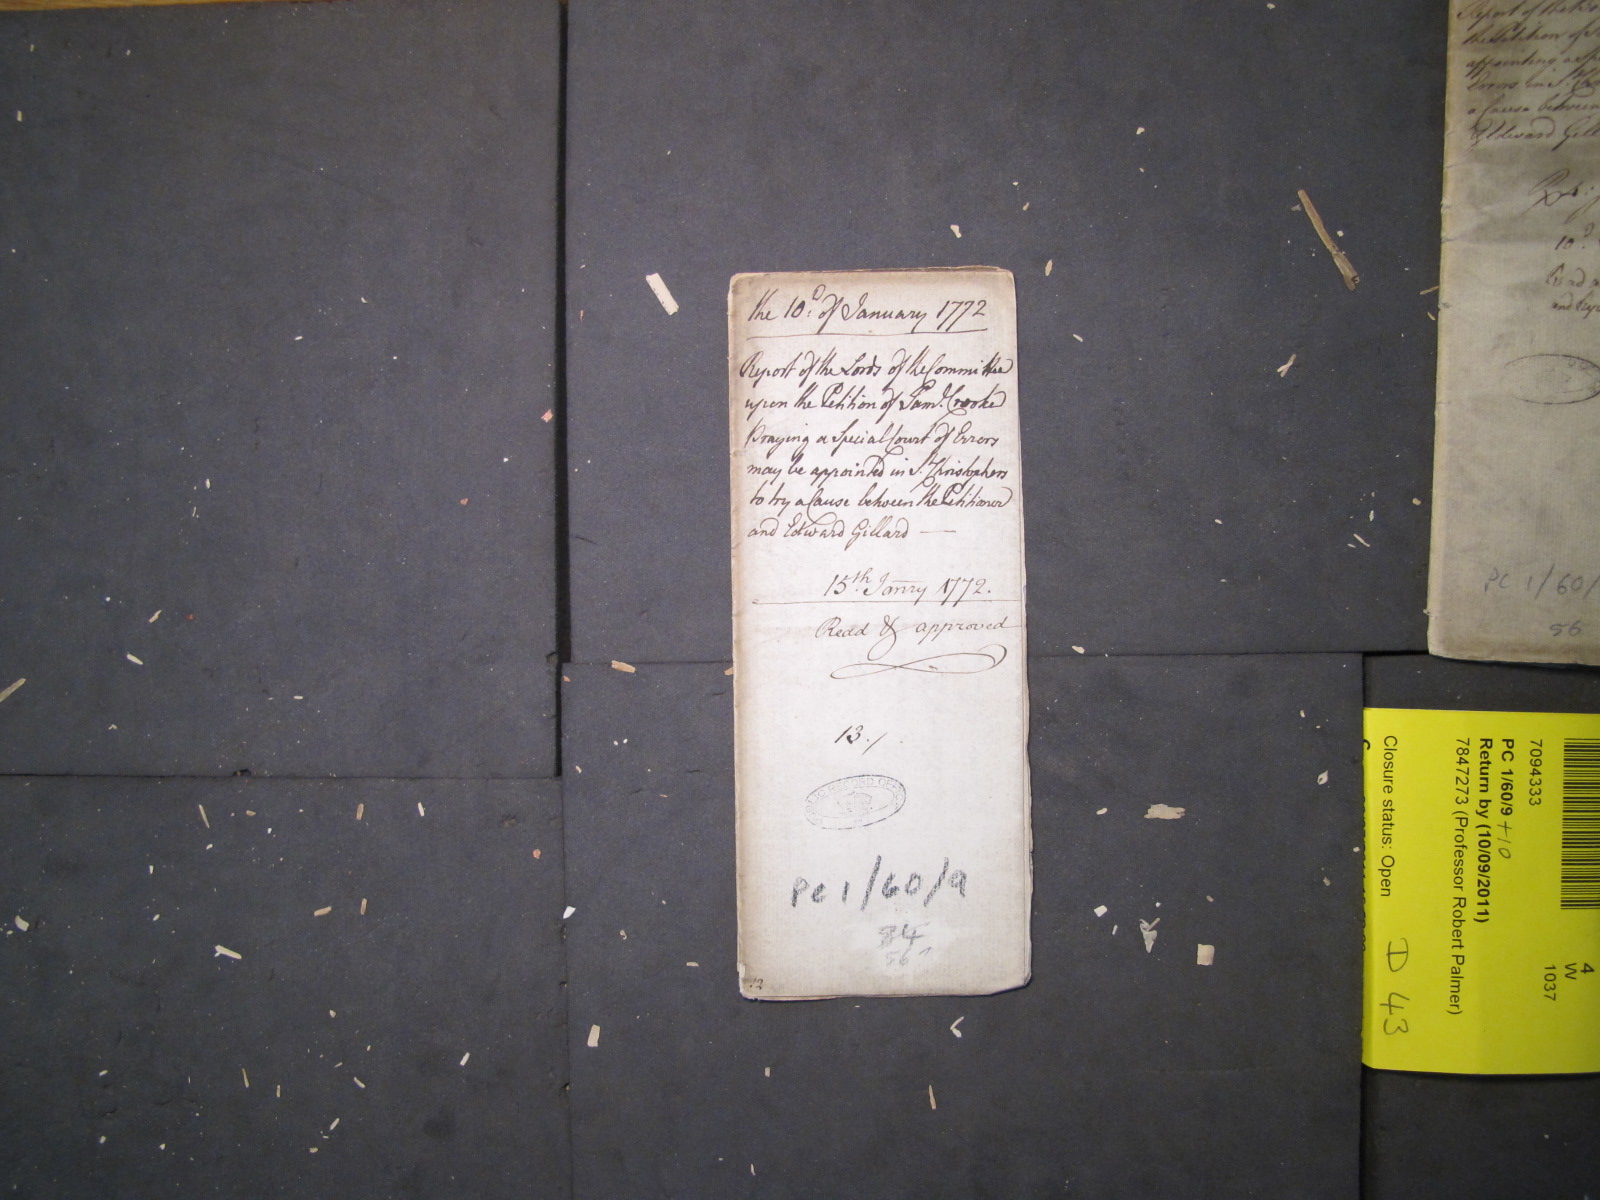 the 10.th of January 1772
Report of the Lords of the Committee
upon the Petition of Saml. Crooke
Praying a Special Court of Errors
may be appointed in St. Christophers
to try a Cause between the Petitioner
and Edward Gillard —
15th. Janry 1772.
Read & approved
13./.
PUBLIC RECORD OFFICE
PC 1/60/9
84
56
12
Report of the
the Petition of
appointing a
Errors in St.
a Cause between
Edward Gill
10
PC 1/60/
56
7094333
PC 1/60/9 +10
Return by (10/09/2011)
7847273 (Professor Robert Palmer)
Closure status: Open
D 43
4
W
1037